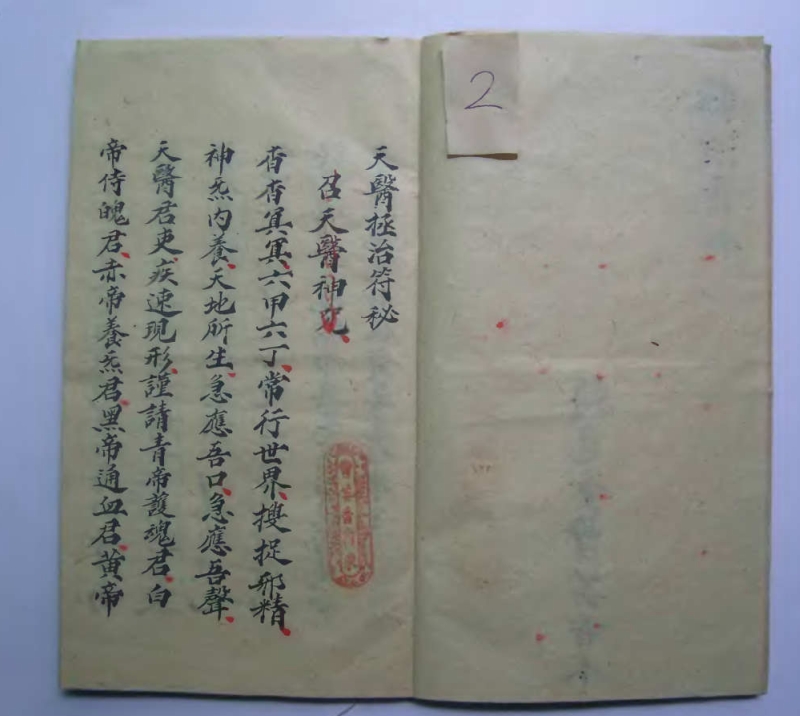 天醫拯治符秘
召天醫神咒
杳杳冥冥六甲六丁常行世界搜捉邪精
神炁内養天地所生急應吾口急應吾聲
天醫君吏疾速現形謹請青帝護魂君白
帝侍魄君赤帝養炁君黑帝通血君黃帝
2